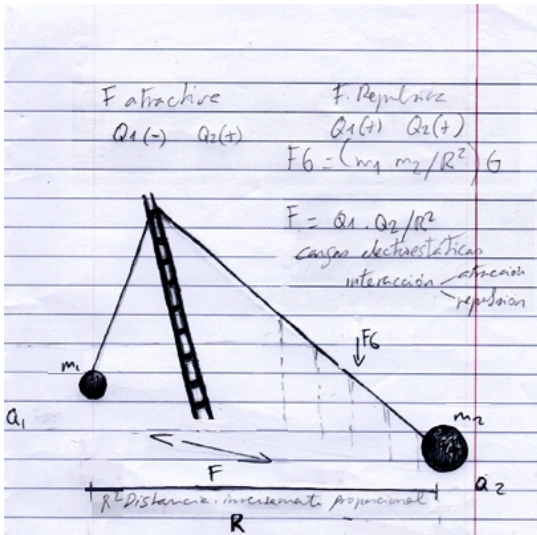 F atractiva F. Repulsiva
Q1(-) Q2(+) Q1(+) Q2(+)
FG = (m1 m2/R²) G
F = Q1 . Q2/R²
cargas electrostáticas
interacción atracción
repulsión
FG
m1
m2
Q1
F
Q2
R² Distancia. inversamente proporcional
R